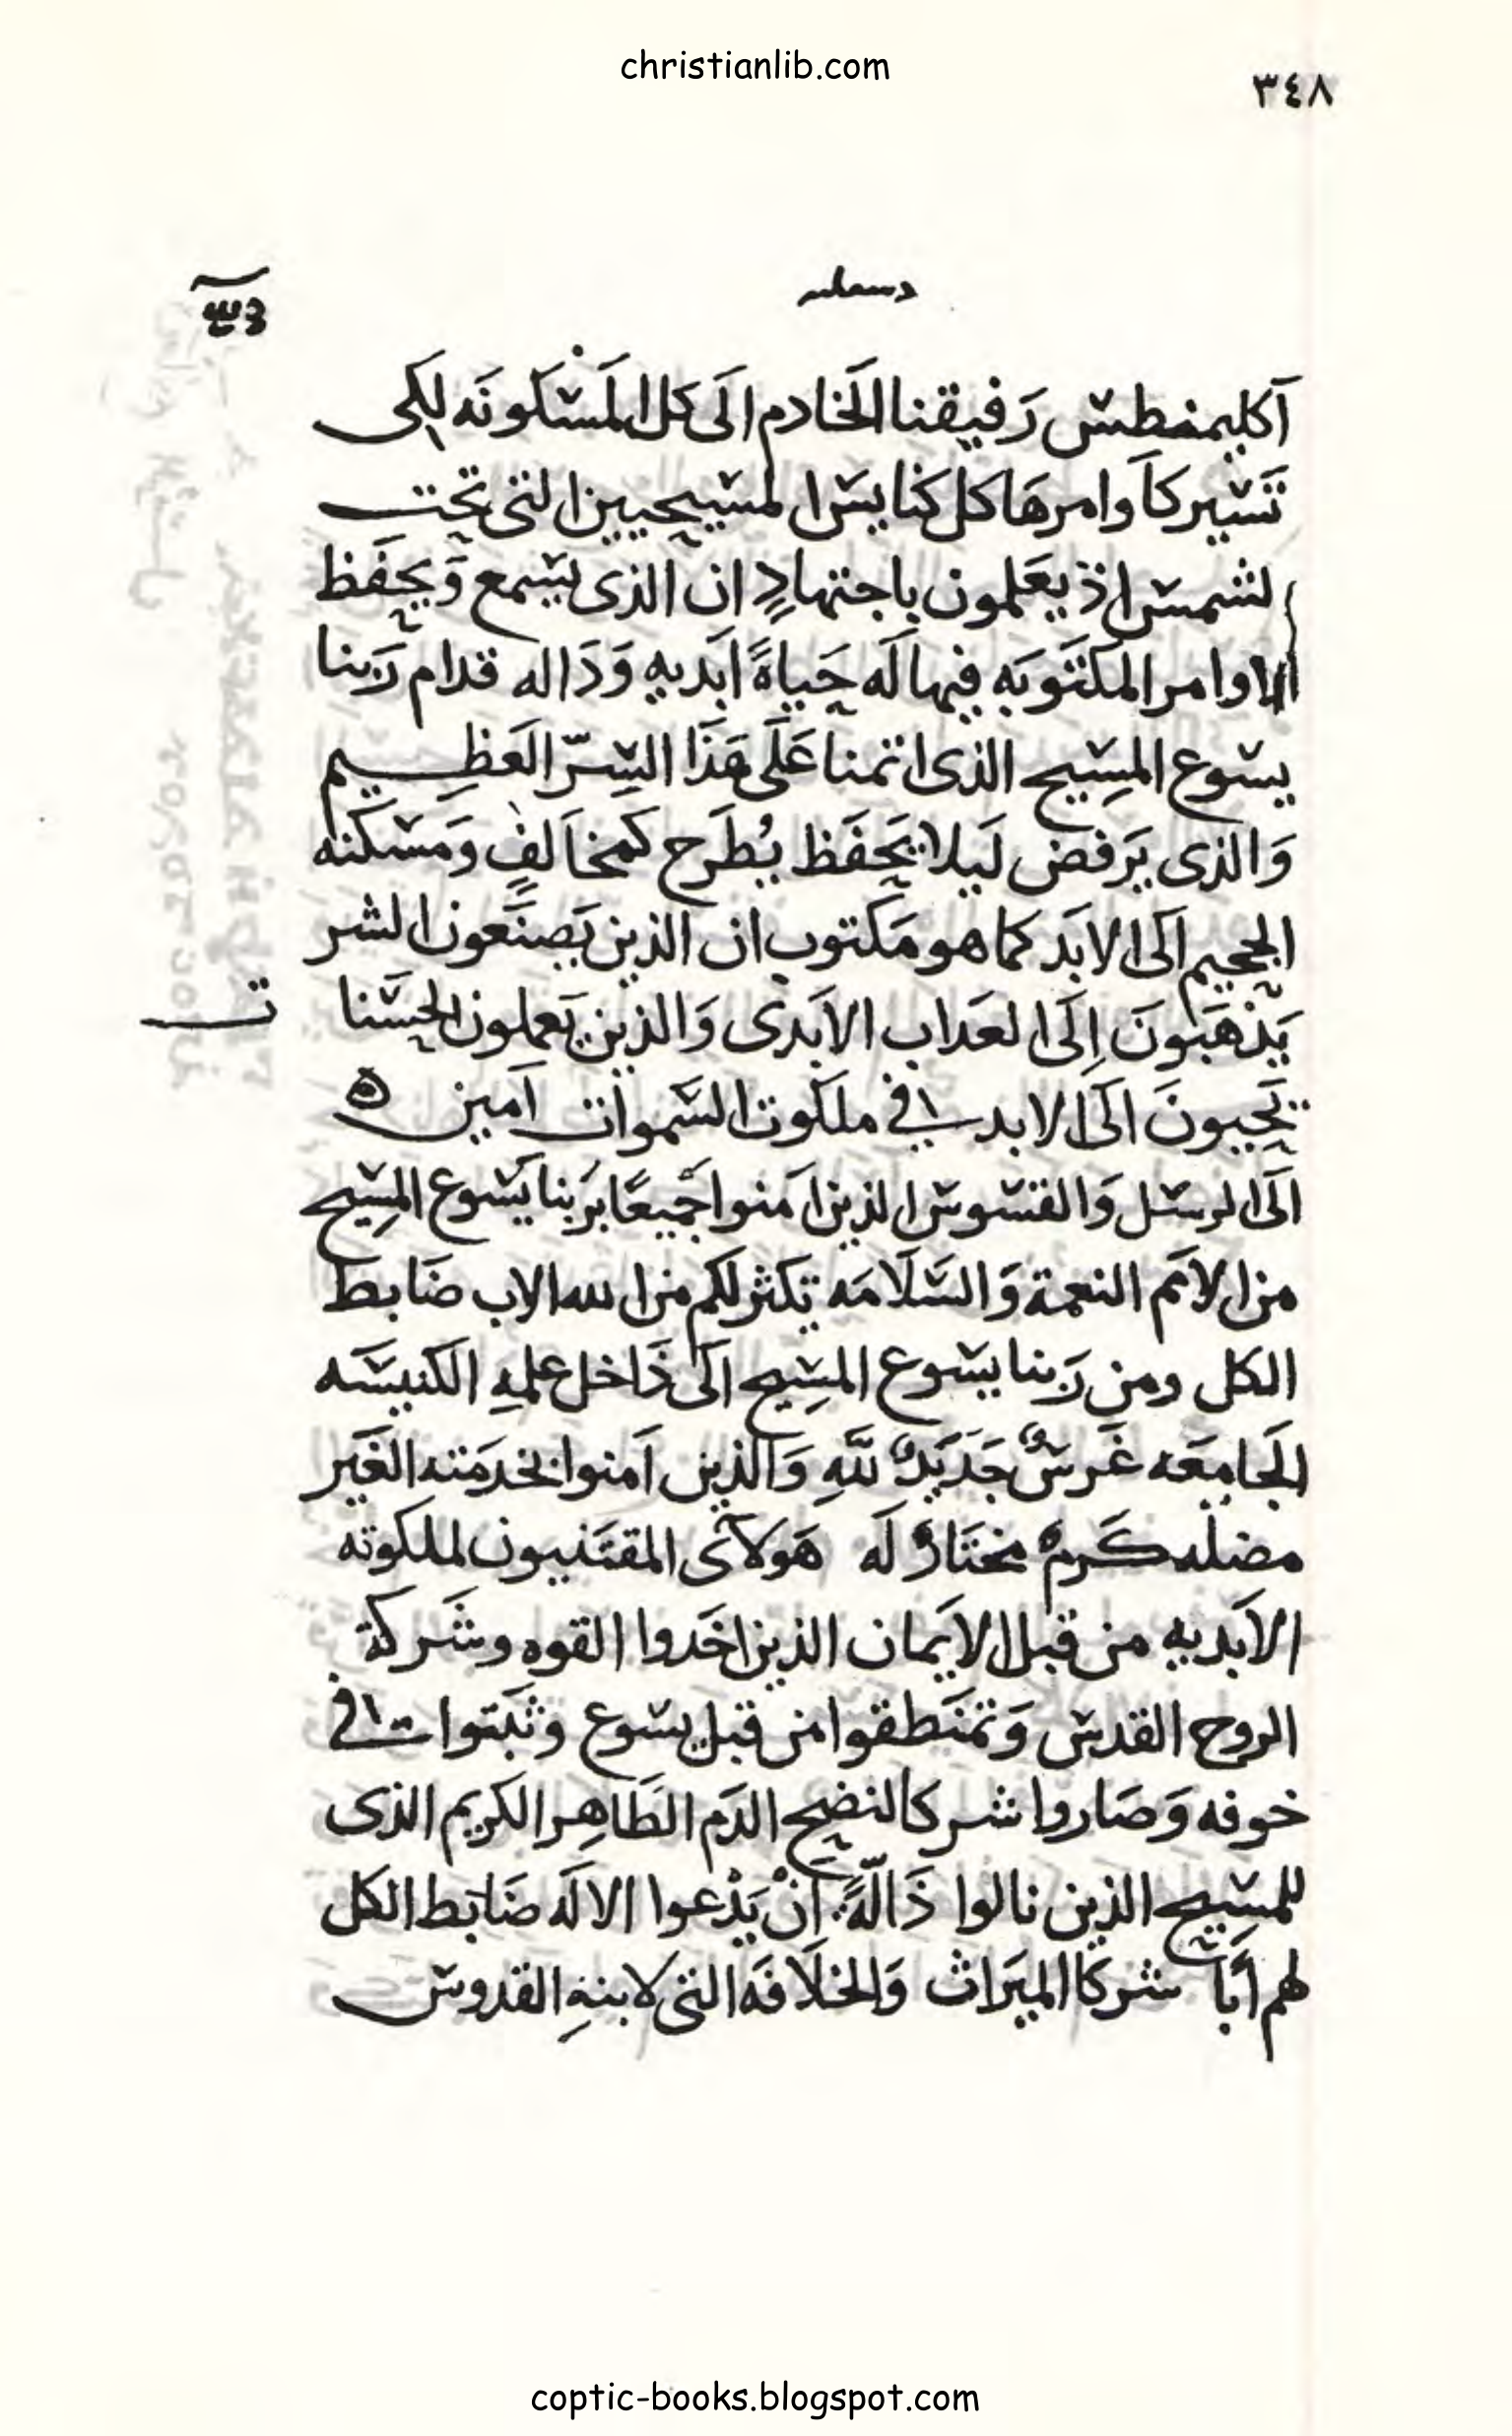 christianlib.com
٣٤٨
آكليمنطس رَفيقنا الَخادم الَى كل المَسْكونَه لكى
تَسير كاَوامرهَا كل كنايس المسيحيين التى تحت
الشمس اذ يعَلمون باجتهادٍ ان الذى يسمع وَيحفَظ
الاوامر المكتَوبَه فيها لَه حَياةً ابَديه وَدَاله قدام رَبنا
يسوع المسِيح الذى اتمنا عَلَى هَذَا السِرّ العَظِيم
وَالذى يَرفض لَيلا يَحفَظ يُطَرح كمخاَلفٍ وَمَسكنه
الجحيم الَى الابَد كما هو مَكتوب ان الذين يَصنَعون الشر
يَذهَبَونَ اِلَى العَداب الاَبدى وَالذين يَعملون الحسَنا ت
يَحِيبونَ الَى الابد فى ملكوت السَموات اَمين ه
الَى الرسل وَالقسوس الذين اَمنوا جَميعًا برَبنا يَسوع المسِيح
من الاَمم النعمة وَالسَلَامَه تكثر لكم من الله الاب ضَابط
الكل ومن رَبنا يسوع المسِيح الَى دَاخل علمهِ الكَنيسَه
الَجامعَه غَرسٌ جَديَدٌ للَّهِ وَالذين اَمنوا بخدمَته الغَير
مضله كَرمٌ مختَارٌ لَه هَولآى المقتَنيون لملكوته
الاَبديه من قبل الاَيمان الذين اخَدوا القوه وشَركة
الروح القدس وَتمنَطقوا من قبل يسوع وثبَتوا فى
خوفه وَصَاروا شركا لنضح الدَم الطَاهِر الكريم الذى
للمسِيح الذين نالوا ذَالّةً انْ يَدْعوا الالَه ضَابَط الكل
لهم اَبًا شركَا الميَراث وَالخلَافَه التى لابنهِ القدوس
coptic-books.blogspot.com